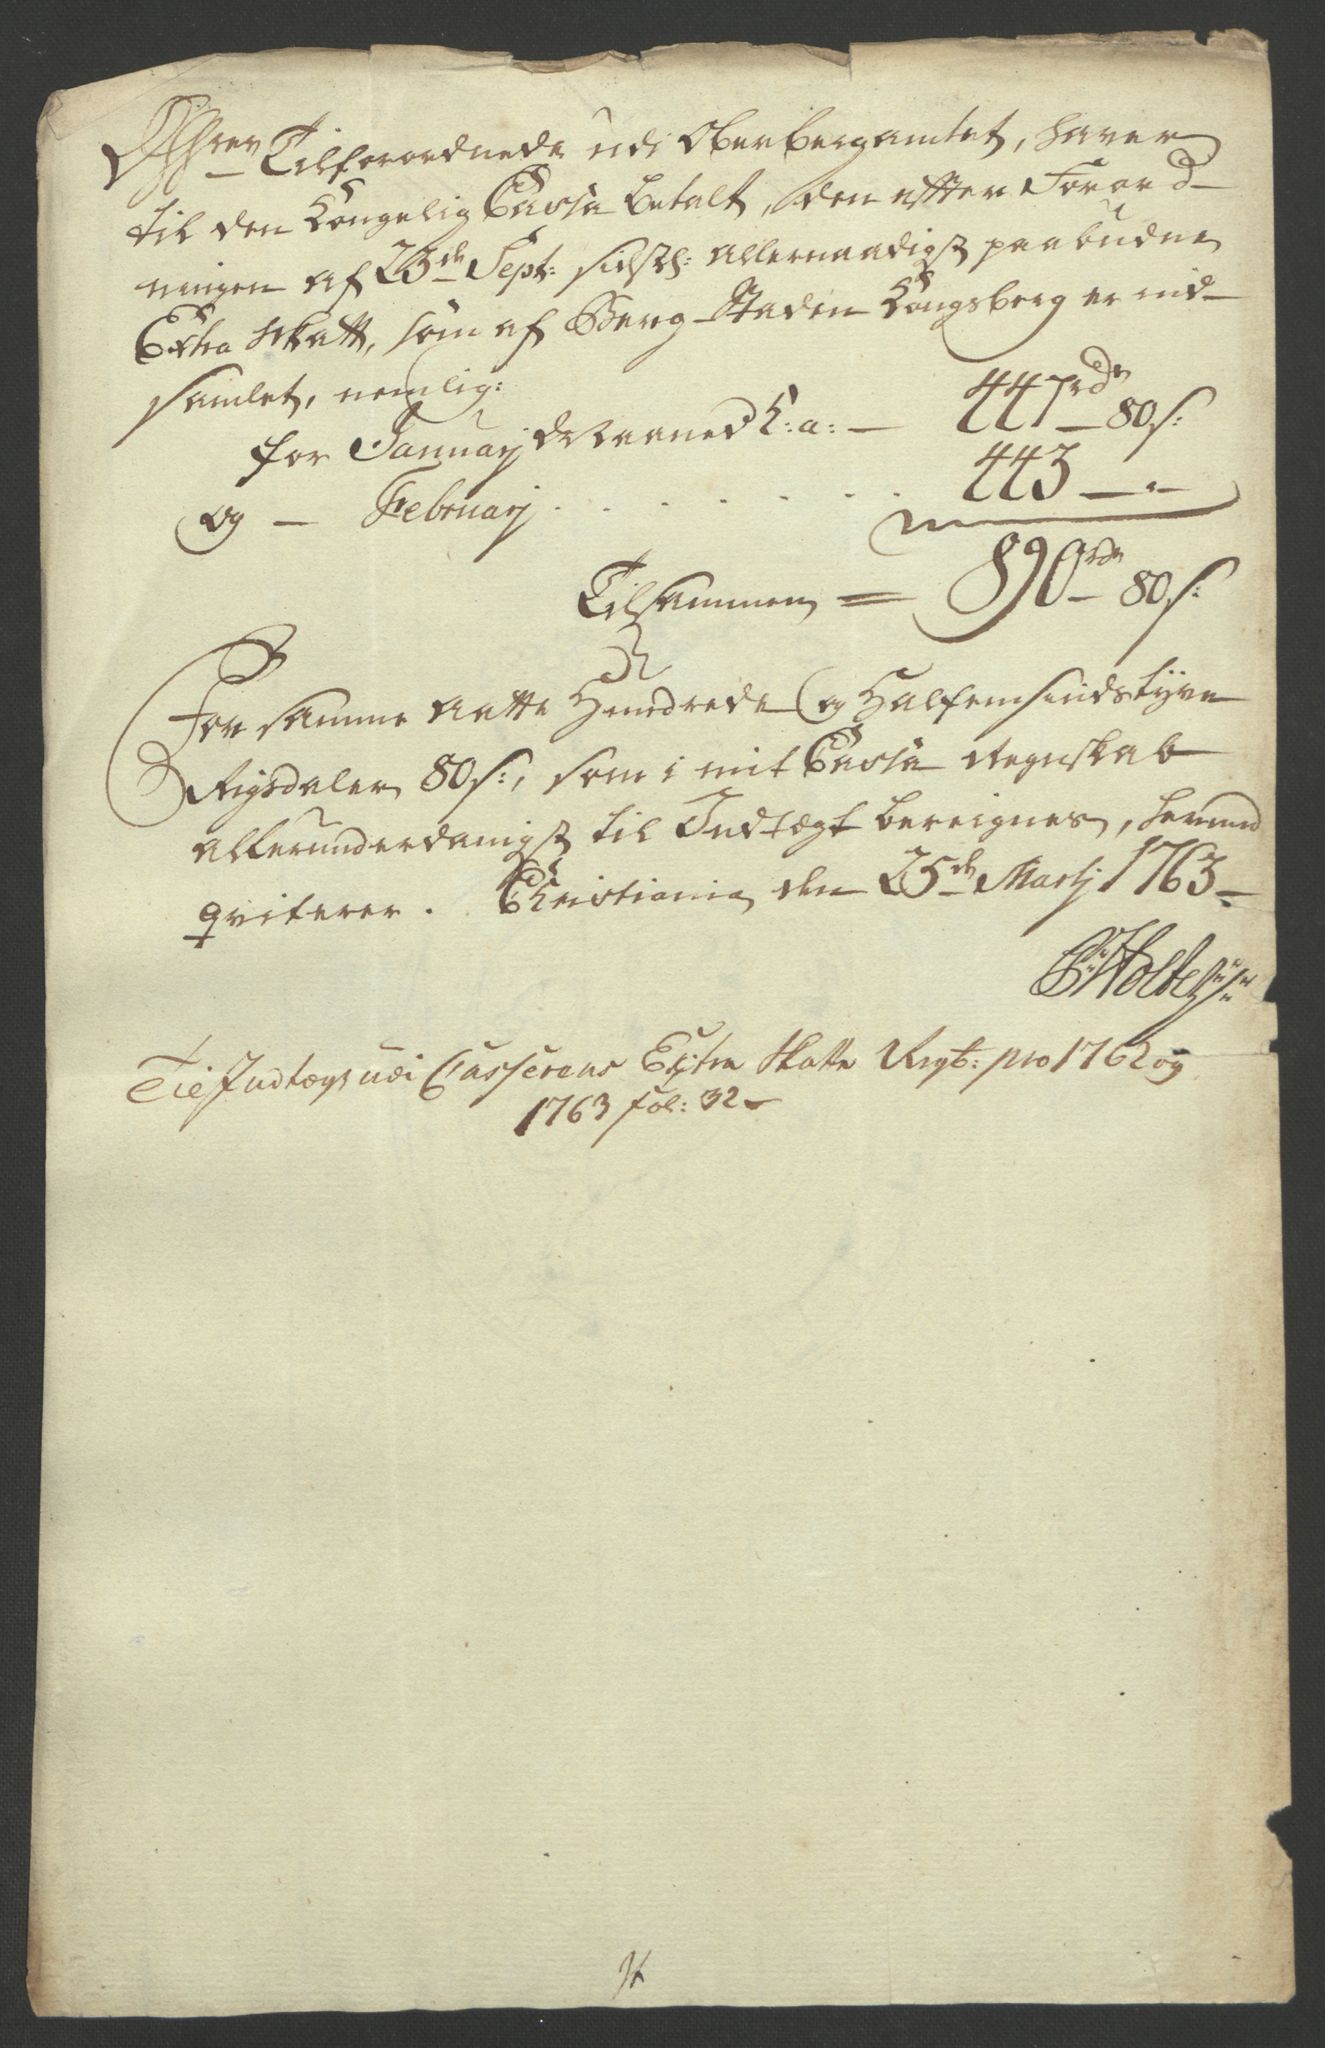 Herrer Tilforordnede udi OberBergamtet, haver
til den Kongelig Cassa betalt, den efter Forord-
ningen af 23de Sept: sidstl: allernaadigst paabudne
Extra Skatt, som af Berg-Staden Kongsberg er ind-
samlet, nemlig:
for Januarj Maaned h: a: — 447rd 80s:
og — Februarj . . . . . . 443 — -
Tilsammen = 890rd 80s:
For samme aatte Hundrede og Halfemsindstyve
Rigsdaler 80s:, som i mit Cassa Regnskab
allerunderdanigst til Indtægt bereignes, herved
qviterer. Christiania den 25de Martj 1763
Til Indtægt udi Casserens Extra Skatte Regb: pro 1762 og
1763 fol: 32